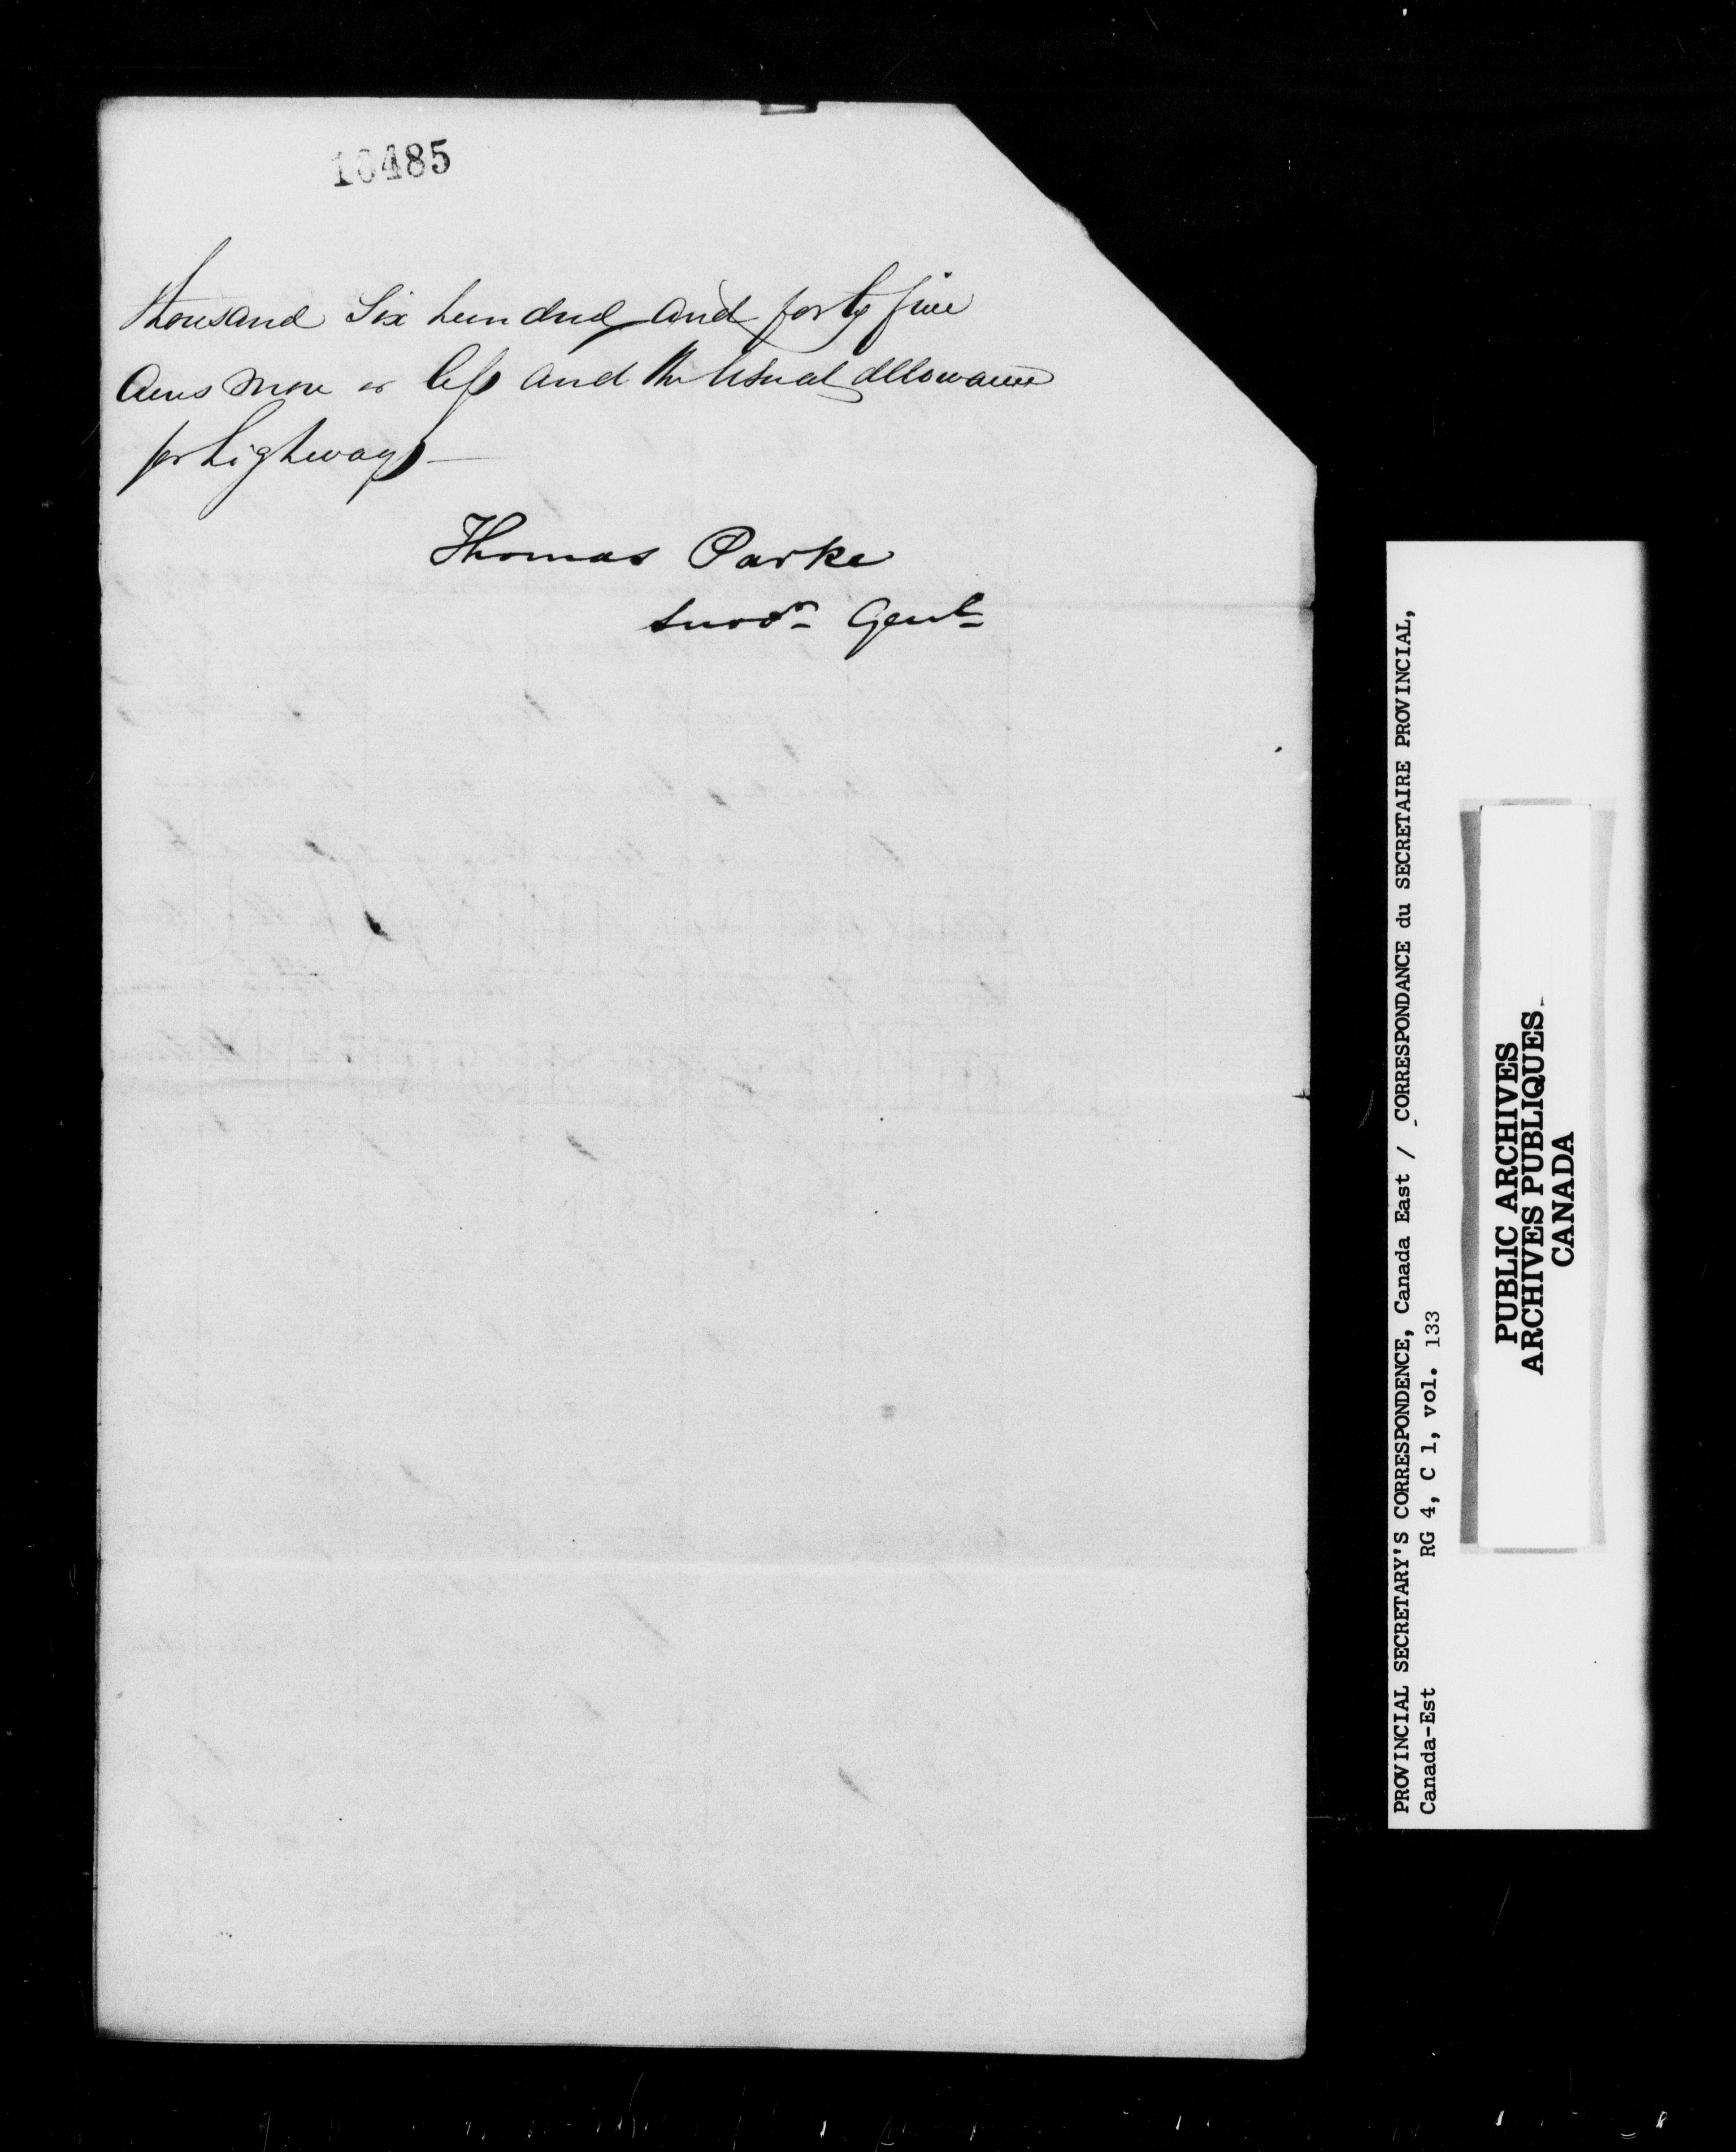 10485
thousand Six hundred and forty five
Acres more or less and the usual allowance
for highways —
Thomas Parke
Survr Genl
PROVINCIAL SECRETARY'S CORRESPONDENCE, Canada East / CORRESPONDANCE du SECRETAIRE PROVINCIAL,
Canada-Est RG 4, C 1, vol. 133
PUBLIC ARCHIVES
ARCHIVES PUBLIQUES
CANADA